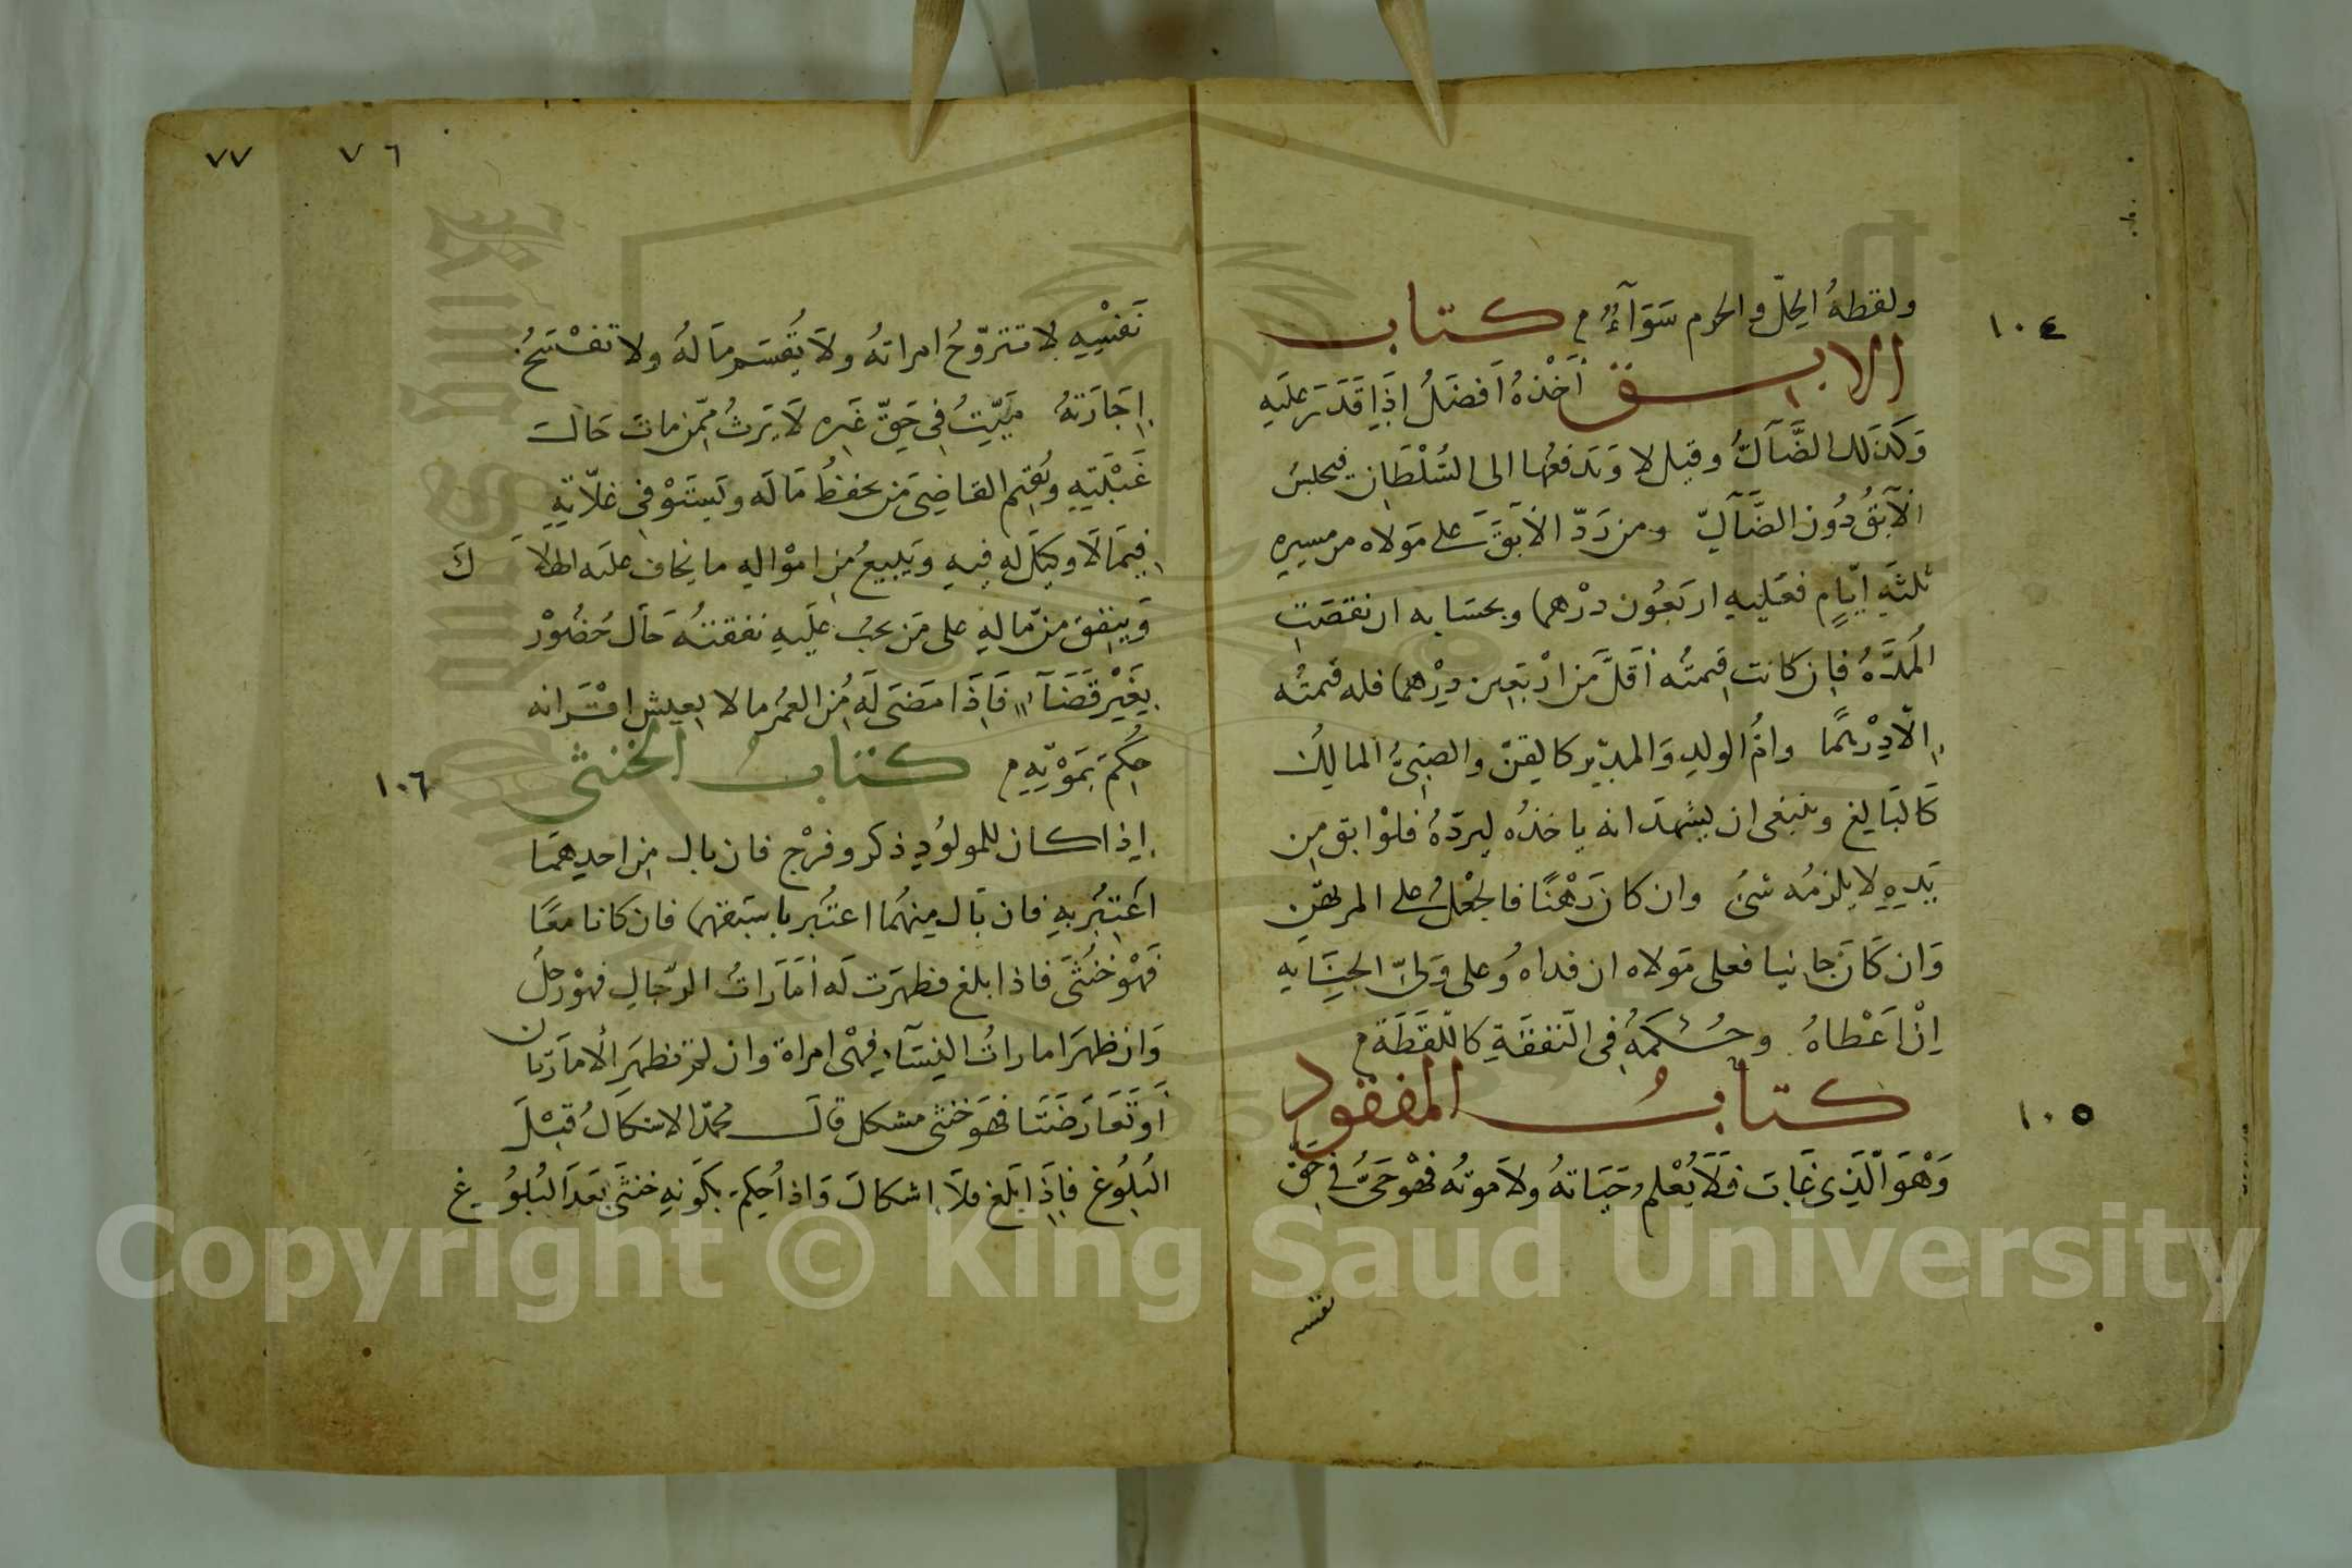 ١٠٤
ولقطهُ الحِلّ والحرم سَوَآءٌ كتاب
الابق أخْذهُ اَفضَلُ اِذَا قَدَرَ علَيه
وَكذَلك الضَّآلُّ وقيل لا وَيَدفعُها الى السُّلْطَانِ فيحبسُ
الآبقُ دُون الضَّآلِّ ومن رَدّ الآبَقَ على مَولاه من مسيرِه
ثلثَهِ ايّامٍ فعَليهِ اربَعُون درْهما وبحسَابه ان نقصَتِ
المُدَّهُ فان كانت قيمتُه أقَلَّ مَن ارْبَعين دِرْهما فله قيمتُه
اِلّا دِرْهمًا وامُّ الولدِ وَالمدبّر كالقِنّ والصَبِىُّ المالِكُ
كَالبَالِغ وينبغى ان يشهدَ انه ياخذُه ليردّهُ فلوْ ابق مِن
يَدِهِ لا يلزمُه شىُ وان كان رَهْنًا فالجُعْلُ على المرتهِن
وَان كَانَ جانيا فعلى مَولاه ان فداه وُعلى وَلِىّ الجِنَايه
اِنْ اعَْطاهُ وحُكمهُ فى النَفقَةِ كاللّقَطَة
كتابُ المفقود
١٠٥
وَهْوَ الَّذِى غَابَ فَلَا يُعْلم حَيَاتهُ ولاَ موتُه فهْوَ حَىُّ فى حَقّ
نفسه
٧٦ ٧٧
نَفسِهِ لا تتزوّجُ امراتهُ ولاَ يُقسَم مَالهُ ولا تفْسَخُ
اِجَارَتهُ مَيّتُ فى حَقّ غَيرِه لَا يَرثُ ممّن ماتَ حَالـَ
غَيْبَتِهِ ويُقيم القاضِى مَن يحفظُ مَا له ويَستَوْفى غلّاتِهِ
فيمَا لَا وكيلَ له فيهِ وَيَبيعُ مِن امْوالِهِ ما يخاف عليه الهلاَكَ
وَيُنفقُ من مّالهِ على مَن يجبُ علَيهِ نفقتُه حَالَ حُضُوْر
بغَيْر قَضَآءٍ فَاِذَا مضَى لَه مُن العمُر مالا يعيش اقْرَانه
حُكِمَ بمَوْتِهِ كتابُ الخنثى
١٠٦
اِذا كان للمولوُدِ ذكر وفرْج فان بال مِن احدِهمَا
اعتبُر بهِ فان بَال مِنهُما اعتُبر باسبَقهما فان كانا معًا
فهْوَ خنثَى فاذا بلغ فظهرَت لَه أمَاراتُ الرّجالِ فهوْ رجلُ
وَان ظهرَ امارَاتُ النِسَآءِ فهْى امراة وان لم تظهَرِ الأماَرَتان
اَو تَعَارَضَتَا فهوَ خنثى مشكل قالَ محمّد الاشكالُ قبْلَ
البُلُوغ فاِذَا بَلغ فلَا اشكالَ وَاذا حُكِمَ بكَونهِ خنثَى بَعدَ البُلوُغ